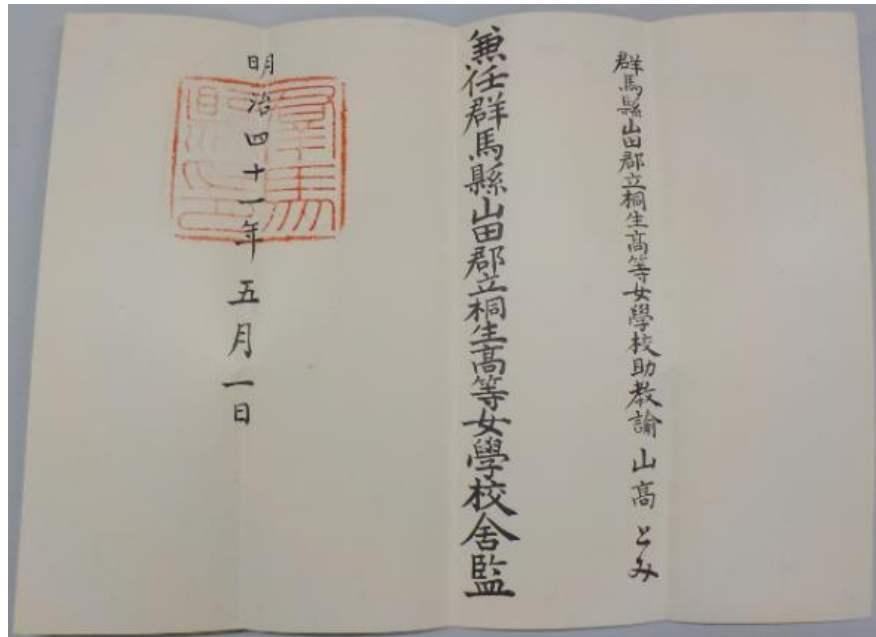 群馬縣山田郡立桐生高等女學校助教諭 山高 とみ
兼任群馬縣山田郡立桐生高等女學校舍監
明治四十一年五月一日
群馬縣之印